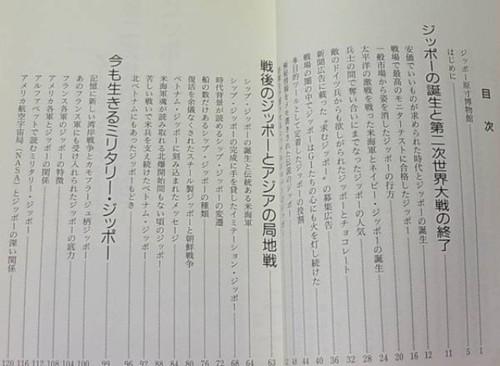 目次
ジッポー原寸博物館 1
はじめに 5
ジッポーの誕生と第二次世界大戦の終了 11
安価でいいものが求められた時代とジッポーの誕生 12
戦場で最高のモニターテストに合格したジッポー 16
一般市場から姿を消したジッポーの行方 20
太平洋の激戦を戦った米海軍とネイビー・ジッポーの誕生 24
兵士の間で奪い合いにまでなったジッポーの人気 28
敵のドイツ兵からも欲しがられたジッポーとチョコレート 32
新聞広告に載った"求むジッポー"の募集広告 36
戦場の闇の中でジッポーはGIたちの心にも火を灯し続けた 40
多目的ツールとして定着したジッポーの役割 44
戦後のジッポーとアジアの局地戦 63
シップ・ジッポーの誕生と伝統ある米海軍 64
シップ・ジッポーの完成に手を貸したイミテーション・ジッポー 68
時代背景が読めるシップ・ジッポーの変遷 72
船の数だけあるシップ・ジッポーの種類 76
復活を余儀なくされたスチール製ジッポーと朝鮮戦争 80
ベトナム・ジッポーに刻み込まれたメッセージ 84
米海軍魂が読み取れる北爆開始間もない頃のジッポー 88
苦しい戦いで米兵を支え続けたベトナム・ジッポー 92
北ベトナムにもあったジッポーもどき 96
今も生きるミリタリー・ジッポー 99
記憶に新しい湾岸戦争とカモフラージュ柄ジッポー 100
あのフランス軍にも受け入れられたジッポーの底力 104
フランス各軍のジッポーの特徴 108
アメリカ各軍とジッポーの関係 112
アルファベットで読むミリタリー・ジッポー 116
アメリカ航空宇宙局（NASA）とジッポーの深い関係 120